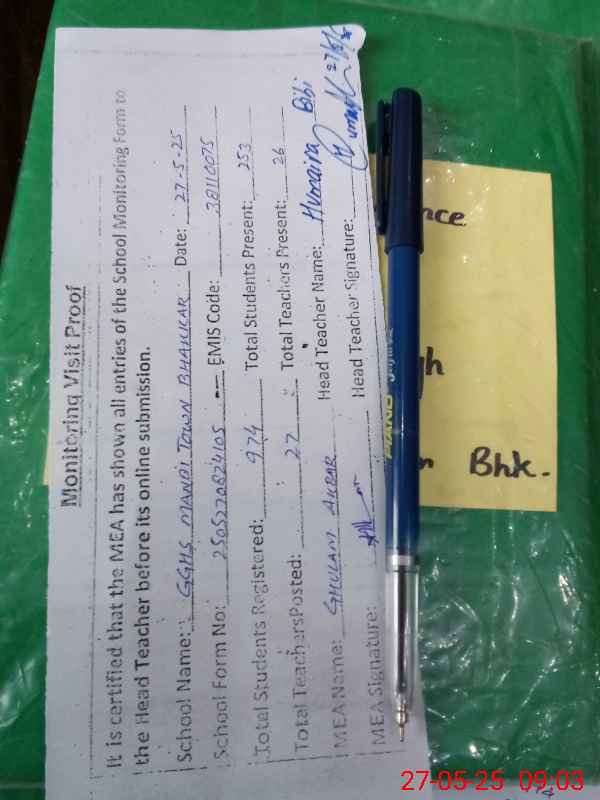 Monitoring Visit Proof
It is certified that the MEA has shown all entries of the School Monitoring Form to
the Head Teacher before its online submission.
School Name: GGHS MANDI TOWN BHAKKAR Date: 27-5-25
School Form No: 2505270824105 EMIS Code: 38110075
Total Students Registered: 974 Total Students Present: 253
Total TeachersPosted: 27 Total Teachers Present: 26
MEA Name: GHULAM AKBAR Head Teacher Name: Humaira Bibi
MEA Signature: Head Teacher Signature: Humaira 27/5/25
nce
gh
Bhk.
PIANO
27-05-25 09:03